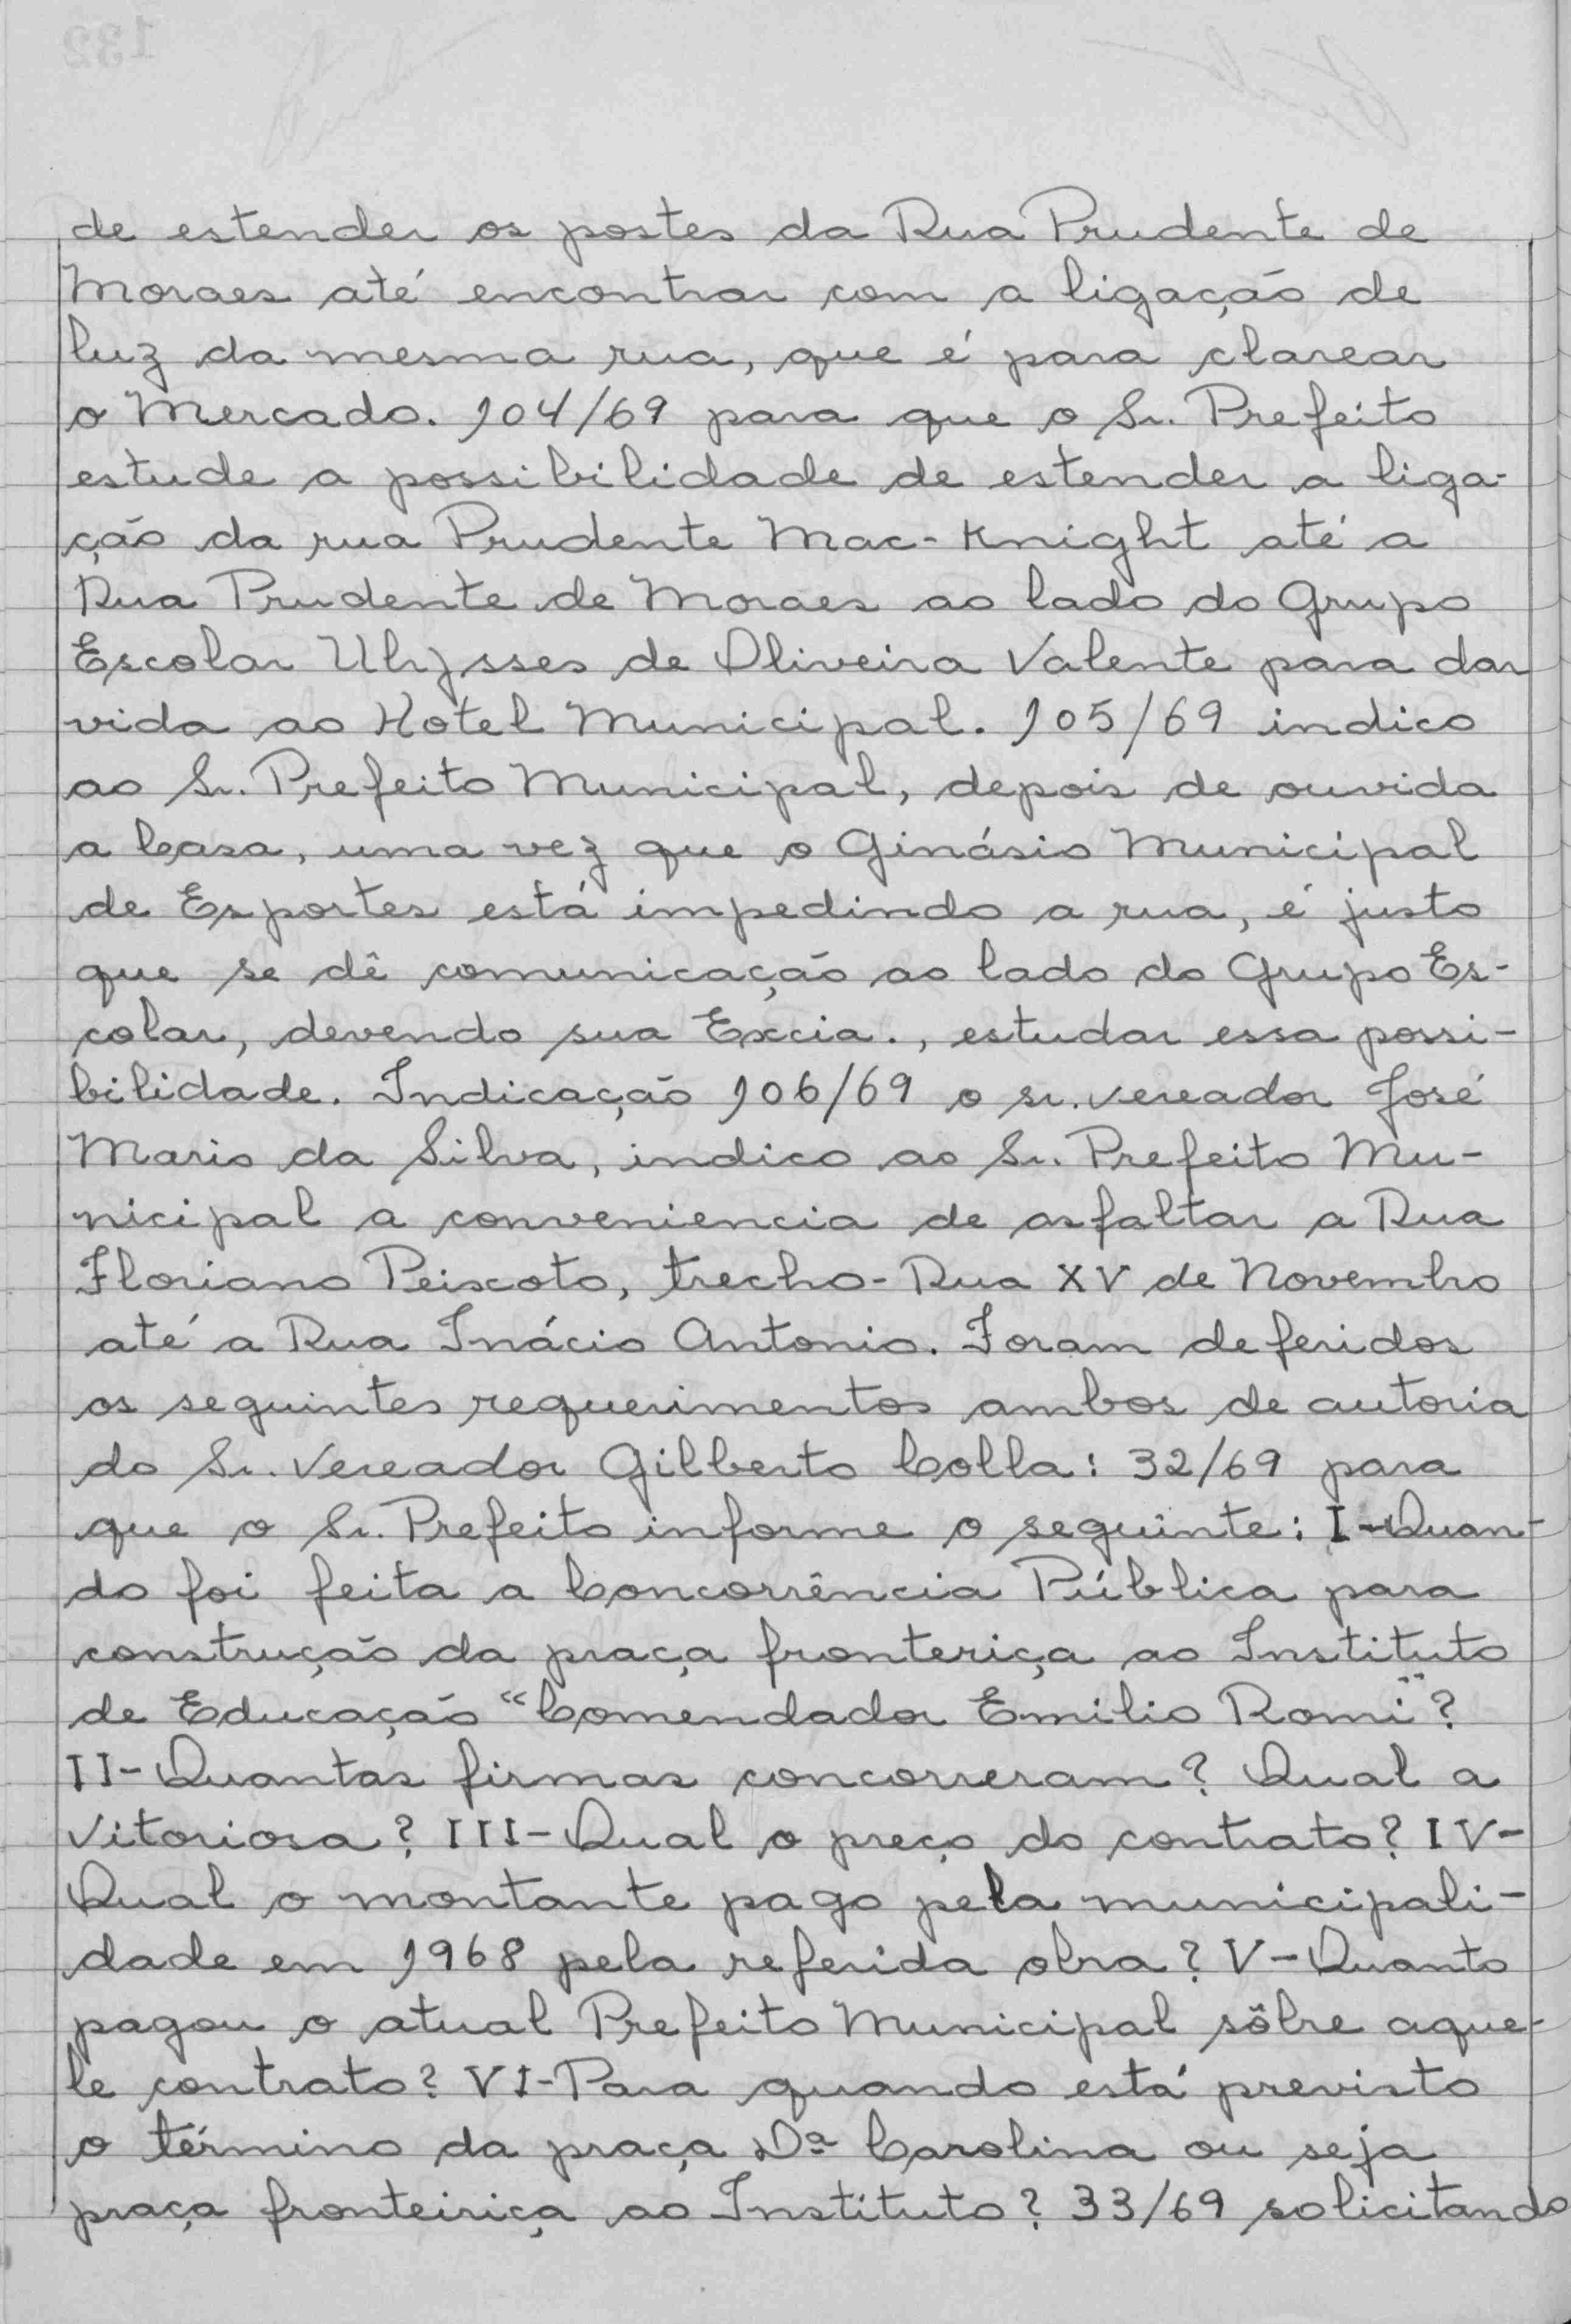 de estender os postes da Rua Prudente de
Moraes até encontrar com a ligação de
luz da mesma rua, que é para clarear
o Mercado. 104/69 para que o Sr. Prefeito
estude a possibilidade de estender a liga-
ção da rua Prudente Mac-Knight até a
Rua Prudente de Moraes ao lado do Grupo
Escolar Ulysses de Oliveira Valente para dar
vida ao Hotel Municipal. 105/69 indico
ao Sr. Prefeito Municipal, depois de ouvida
a Casa, uma vez que o Ginásio Municipal
de Esportes está impedindo a rua, é justo
que se dê comunicação ao lado do Grupo Es-
colar, devendo sua Excia., estudar essa possi-
bilidade. Indicação 106/69 o sr. vereador José
Mario da Silva, indico ao Sr. Prefeito Mu-
nicipal a conveniencia de asfaltar a Rua
Floriano Peixoto, trecho-Rua XV de Novembro
até a Rua Inácio Antonio. Foram deferidos
os seguintes requerimentos ambos de autoria
do Sr. Vereador Gilberto Colla: 32/69 para
que o Sr. Prefeito informe o seguinte: I-Quan-
do foi feita a Concorrência Pública para
construção da praça fronteriça ao Instituto
de Educação "Comendador Emilio Romi"?
II-Quantas firmas concorreram? Qual a
Vitoriosa? III-Qual o preço do contrato? IV-
Qual o montante pago pela municipali-
dade em 1968 pela referida obra? V-Quanto
pagou o atual Prefeito Municipal sôbre aque-
le contrato? VI-Para quando está previsto
o término da praça Dª Carolina ou seja
praça fronteiriça ao Instituto? 33/69 solicitando